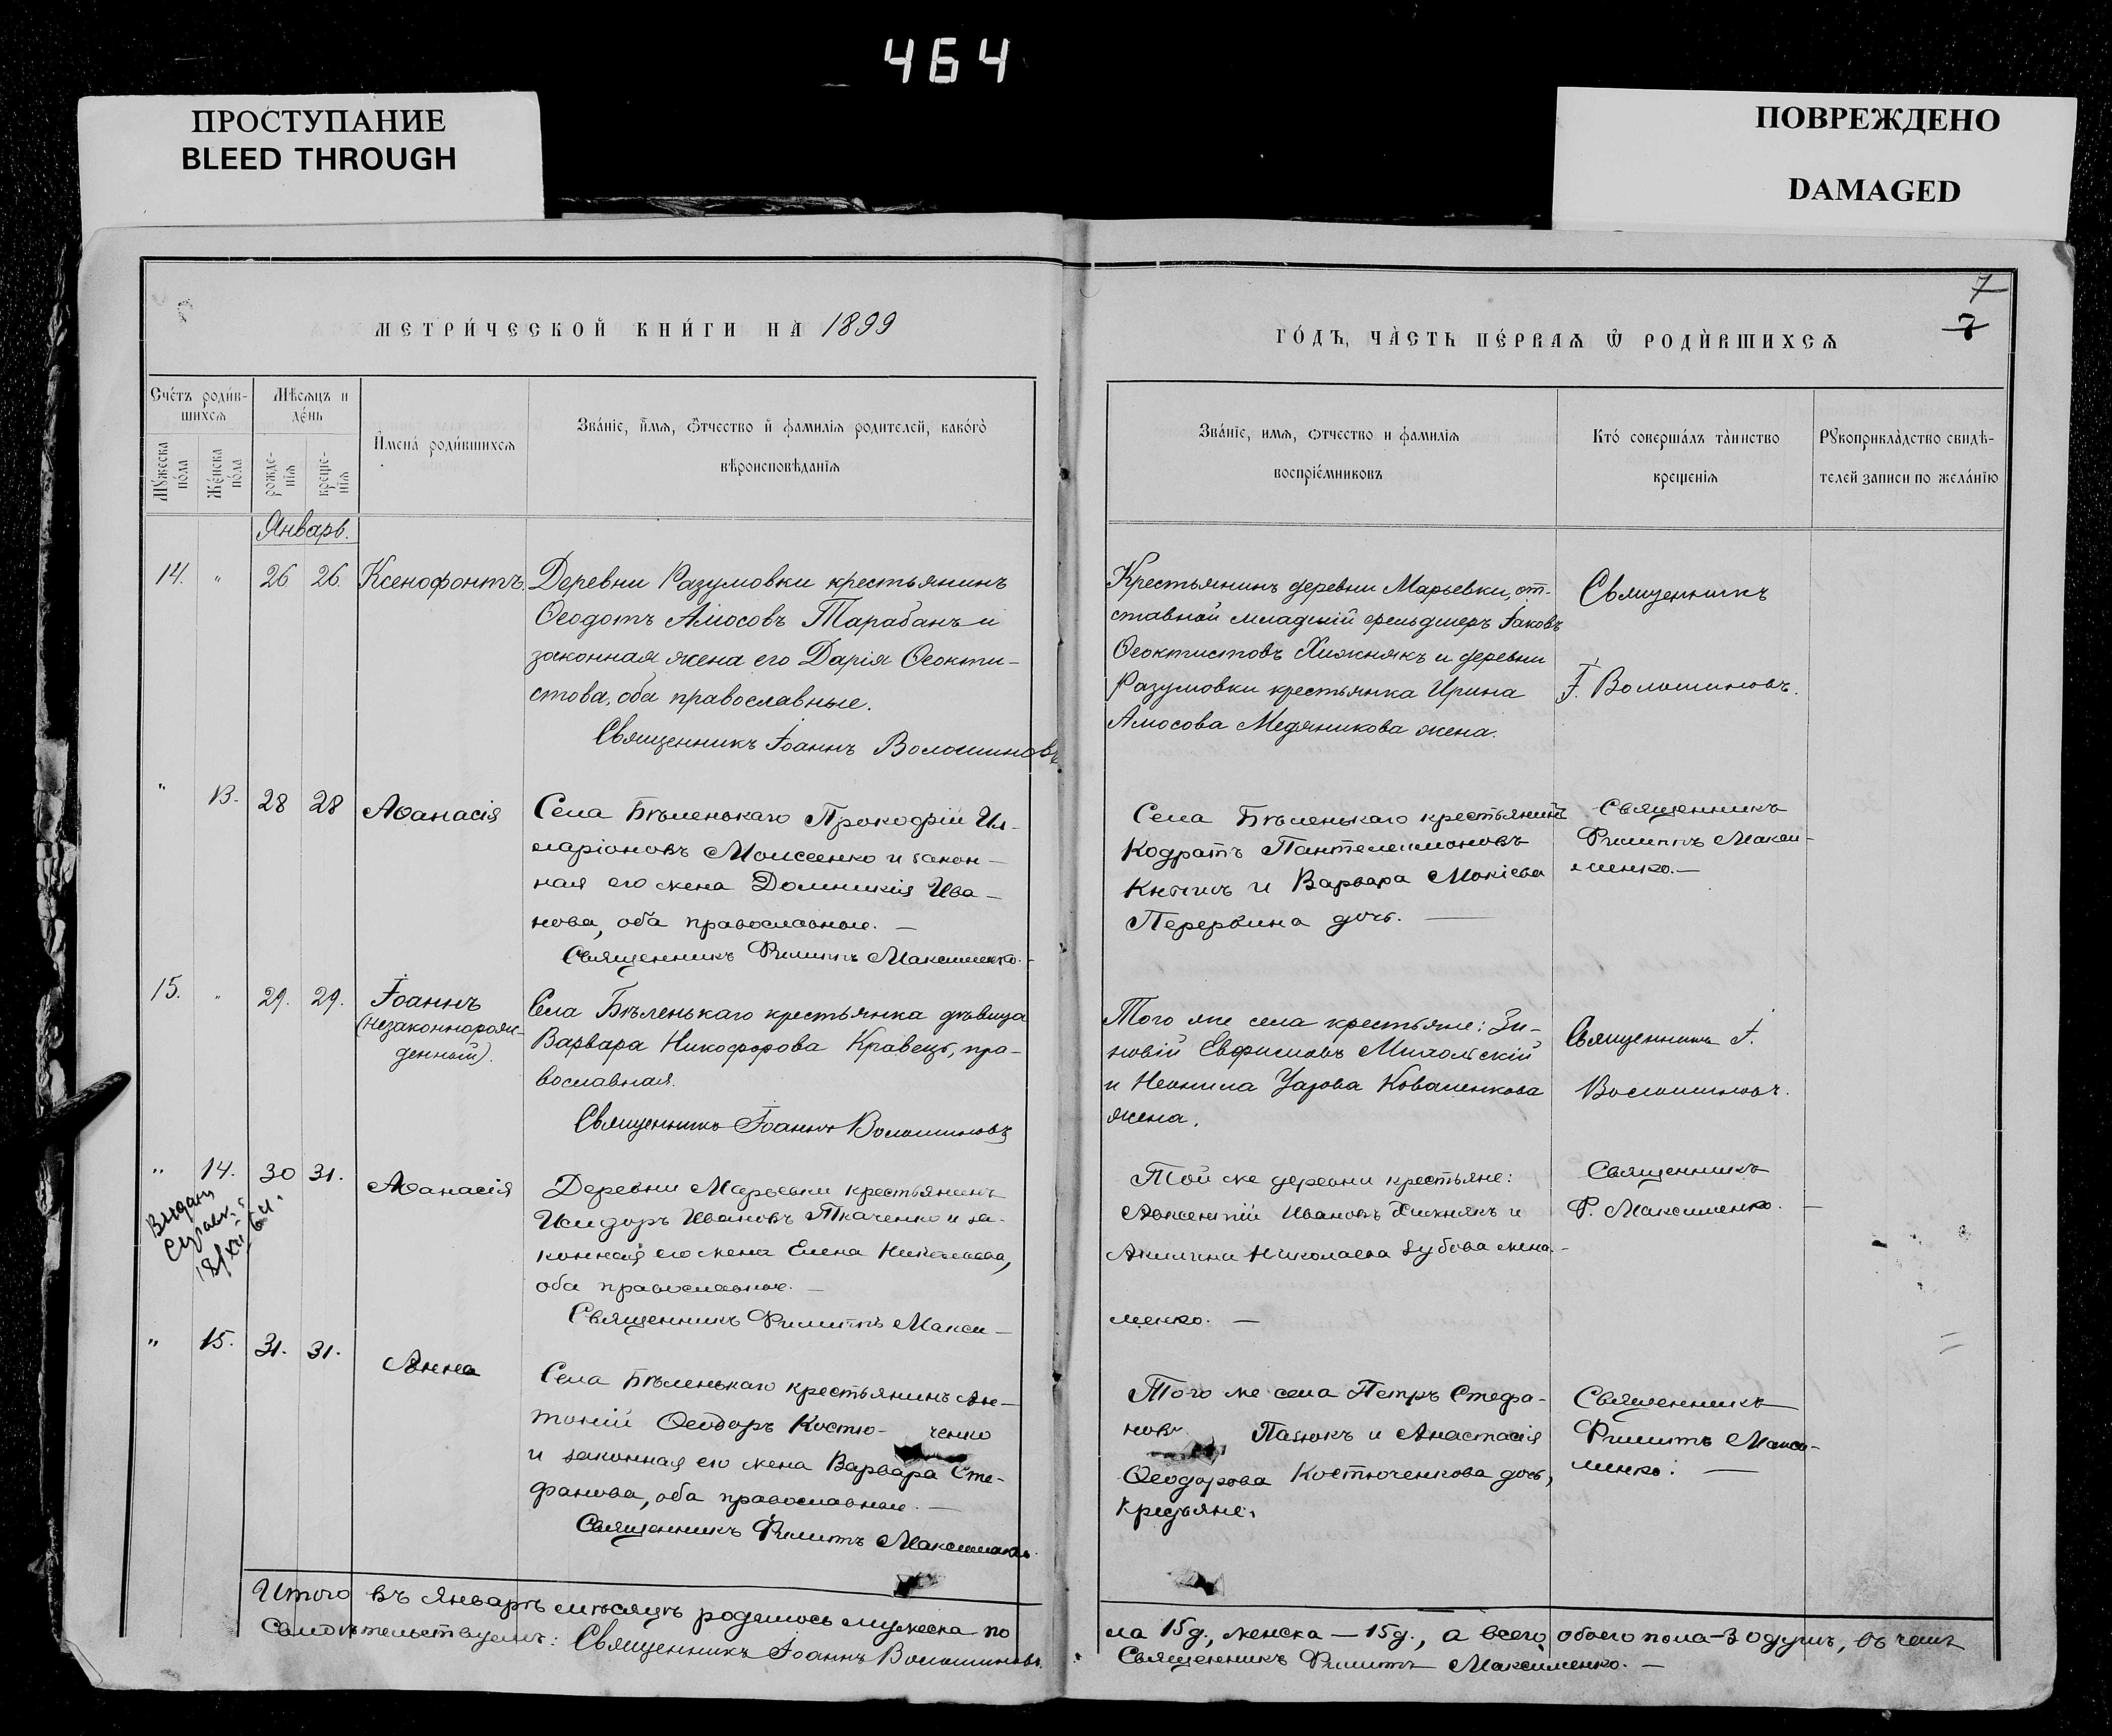 464
ПРОСТУПАНИЕ
BLEED THROUGH
ПОВРЕЖДЕНО
DAMAGED
7
7
МЕТРИ́ЧЕСКОЙ КНИ́ГИ НА 1899
ГО́ДЪ, ЧА́СТЬ ПЕ́РВАѦ Ѿ РОДИ́ВШИХСѦ
Сче́тъ роди́в-
шихсѧ
Мꙋ́жеска по́ла
Же́нска по́ла
Мѣ́сѧцъ и де́нь
рожде-нїѧ
креще-нїѧ
И҆мена̀ роди́вшихсѧ
Зва́нїе, и҆́мѧ, ѻ҆́тчество и҆ фамилїѧ родителей, како́гѡ
вѣроисповѣ́данїѧ
Зва́нїе, имѧ, ѻтчество и фамилїѧ
воспрїе́мниковъ
Кто́ соверша́лъ та́инство
крещенїѧ
Рꙋкоприкла́дство свидѣ-
телей записи по жела́нїю
Январь.
14. " 26 26. Ксенофонтъ. Деревни Разумовки крестьянинъ
Ѳеодотъ Амосовъ Тарабанъ и
законная жена его Дарія Ѳеокти-
стова, оба православные.
Священникъ Іоаннъ Волошиновъ
Крестьянинъ деревни Марьевки, от-
ставной младшій фельдшеръ Іаковъ
Ѳеоктистовъ Хижнякъ и деревни
Разумовки крестьянка Ирина
Амосова Медяникова жена.
Священникъ
І. Волошиновъ.
" 13. 28 28 Аѳанасія Села Бѣленькаго Прокофій Ил-
ларіоновъ Моисеенко и закон-
ная его жена Домникія Ива-
нова, оба православные. —
Священникъ Филиппъ Максименко. -
Села Бѣленькаго крестьянинъ
Кодратъ Пантелеимоновъ
Кнышъ и Варвара Мокіева
Перервина дочь. —
Священникъ
Филиппъ Макси-
менко. —
15. " 29. 29. Іоаннъ
(незаконнорож-
денный).
Села Бѣленькаго крестьянка дѣвица
Варвара Никифорова Кравецъ, пра-
вославная.
Священникъ Іоаннъ Волошиновъ
Того же села крестьяне: Зи-
новій Евфимовъ
и Неонила Уарова Коваленкова
жена.
Священникъ І.
Волошиновъ.
" 14. 30 31. Аѳанасія Деревни Марьевки крестьянинъ
Исидоръ Ивановъ Ткаченко и за-
конная его жена Елена Николаева,
оба православные. —
Священникъ Филиппъ Макси —
менко. —
Той же деревни крестьяне:
Авксентій Ивановъ Хижнякъ и
Акилина Николаева Зубова жена. -
Священникъ
Ф. Максименко. —
" 15. 31. 31. Анна Села Бѣленькаго крестьянинъ Ан-
тоній Ѳеодоръ Костю- ченко
и законная его жена Варвара Сте-
фанова, оба православные. —
Священникъ Филиппъ Максименко.
Того же села Петръ Стефа-
новъ Пазюкъ и Анастасія
Ѳеодорова Костюченкова дочь,
крестьяне.
Священникъ
Филиппъ Макси-
менко. —
Итого въ январѣ мѣсяцѣ родилось мужеска по
ла 15 д., женска — 15 д., а всего обоего пола — 30 душъ, въ чемъ
Свидѣтельствуемъ: Священникъ Іоаннъ Волошиновъ.
Священникъ Филиппъ Максименко. —